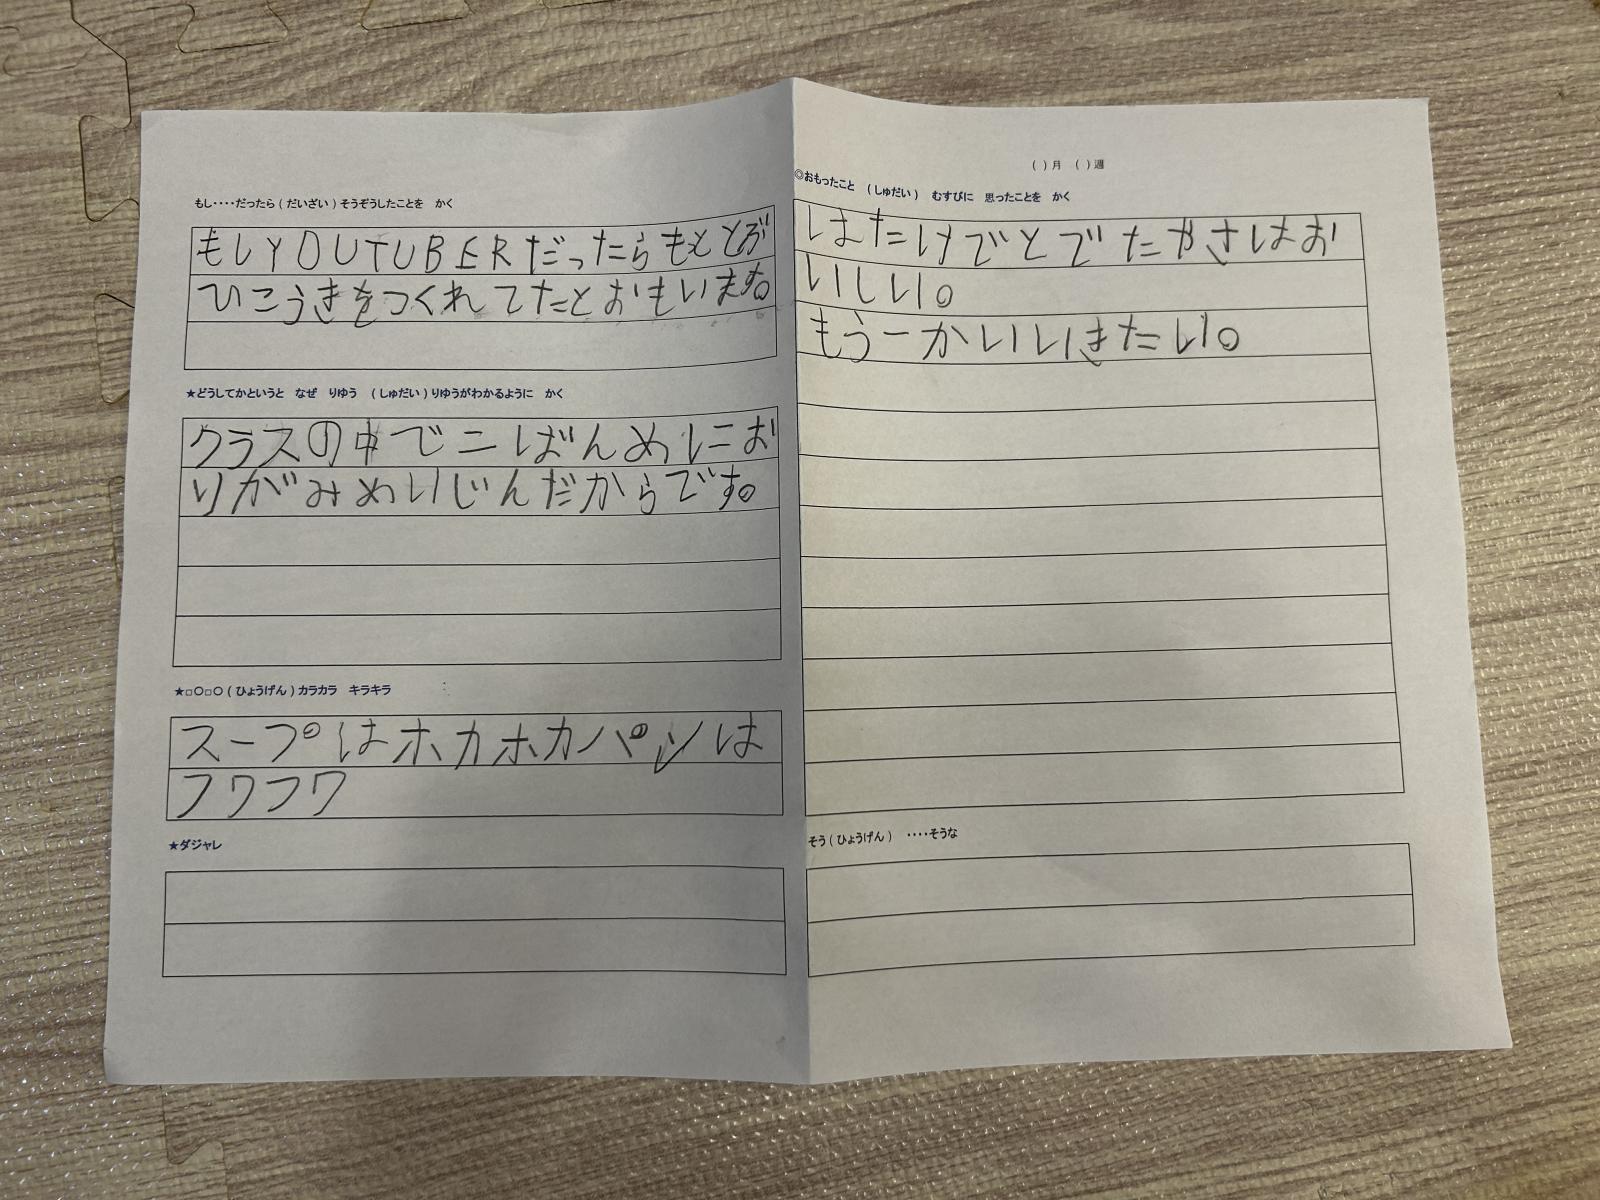 もし・・・・だったら（だいざい）そうぞうしたことを　かく
もしYOUTUBERだったらもととぶ
ひこうきをつくれてたとおもいます。
★どうしてかというと　なぜ　りゆう　（しゅだい）りゆうがわかるように　かく
クラスの中で二ばんめにお
りがみめいじんだからです。
★□○□○（ひょうげん）カラカラ　キラキラ
スープはホカホカパンは
フワフワ
★ダジャレ
（ ）月　（ ）週
◎おもったこと　（しゅだい）　むすびに　思ったことを　かく
はたけでとでたやさはお
いしい。
もう一かいいきたい。
そう（ひょうげん）　・・・・そうな